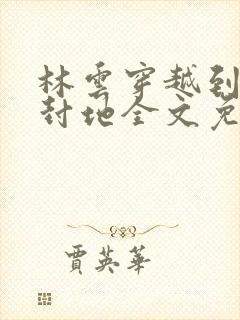 林雲穿越到
封地全文免
賈英華